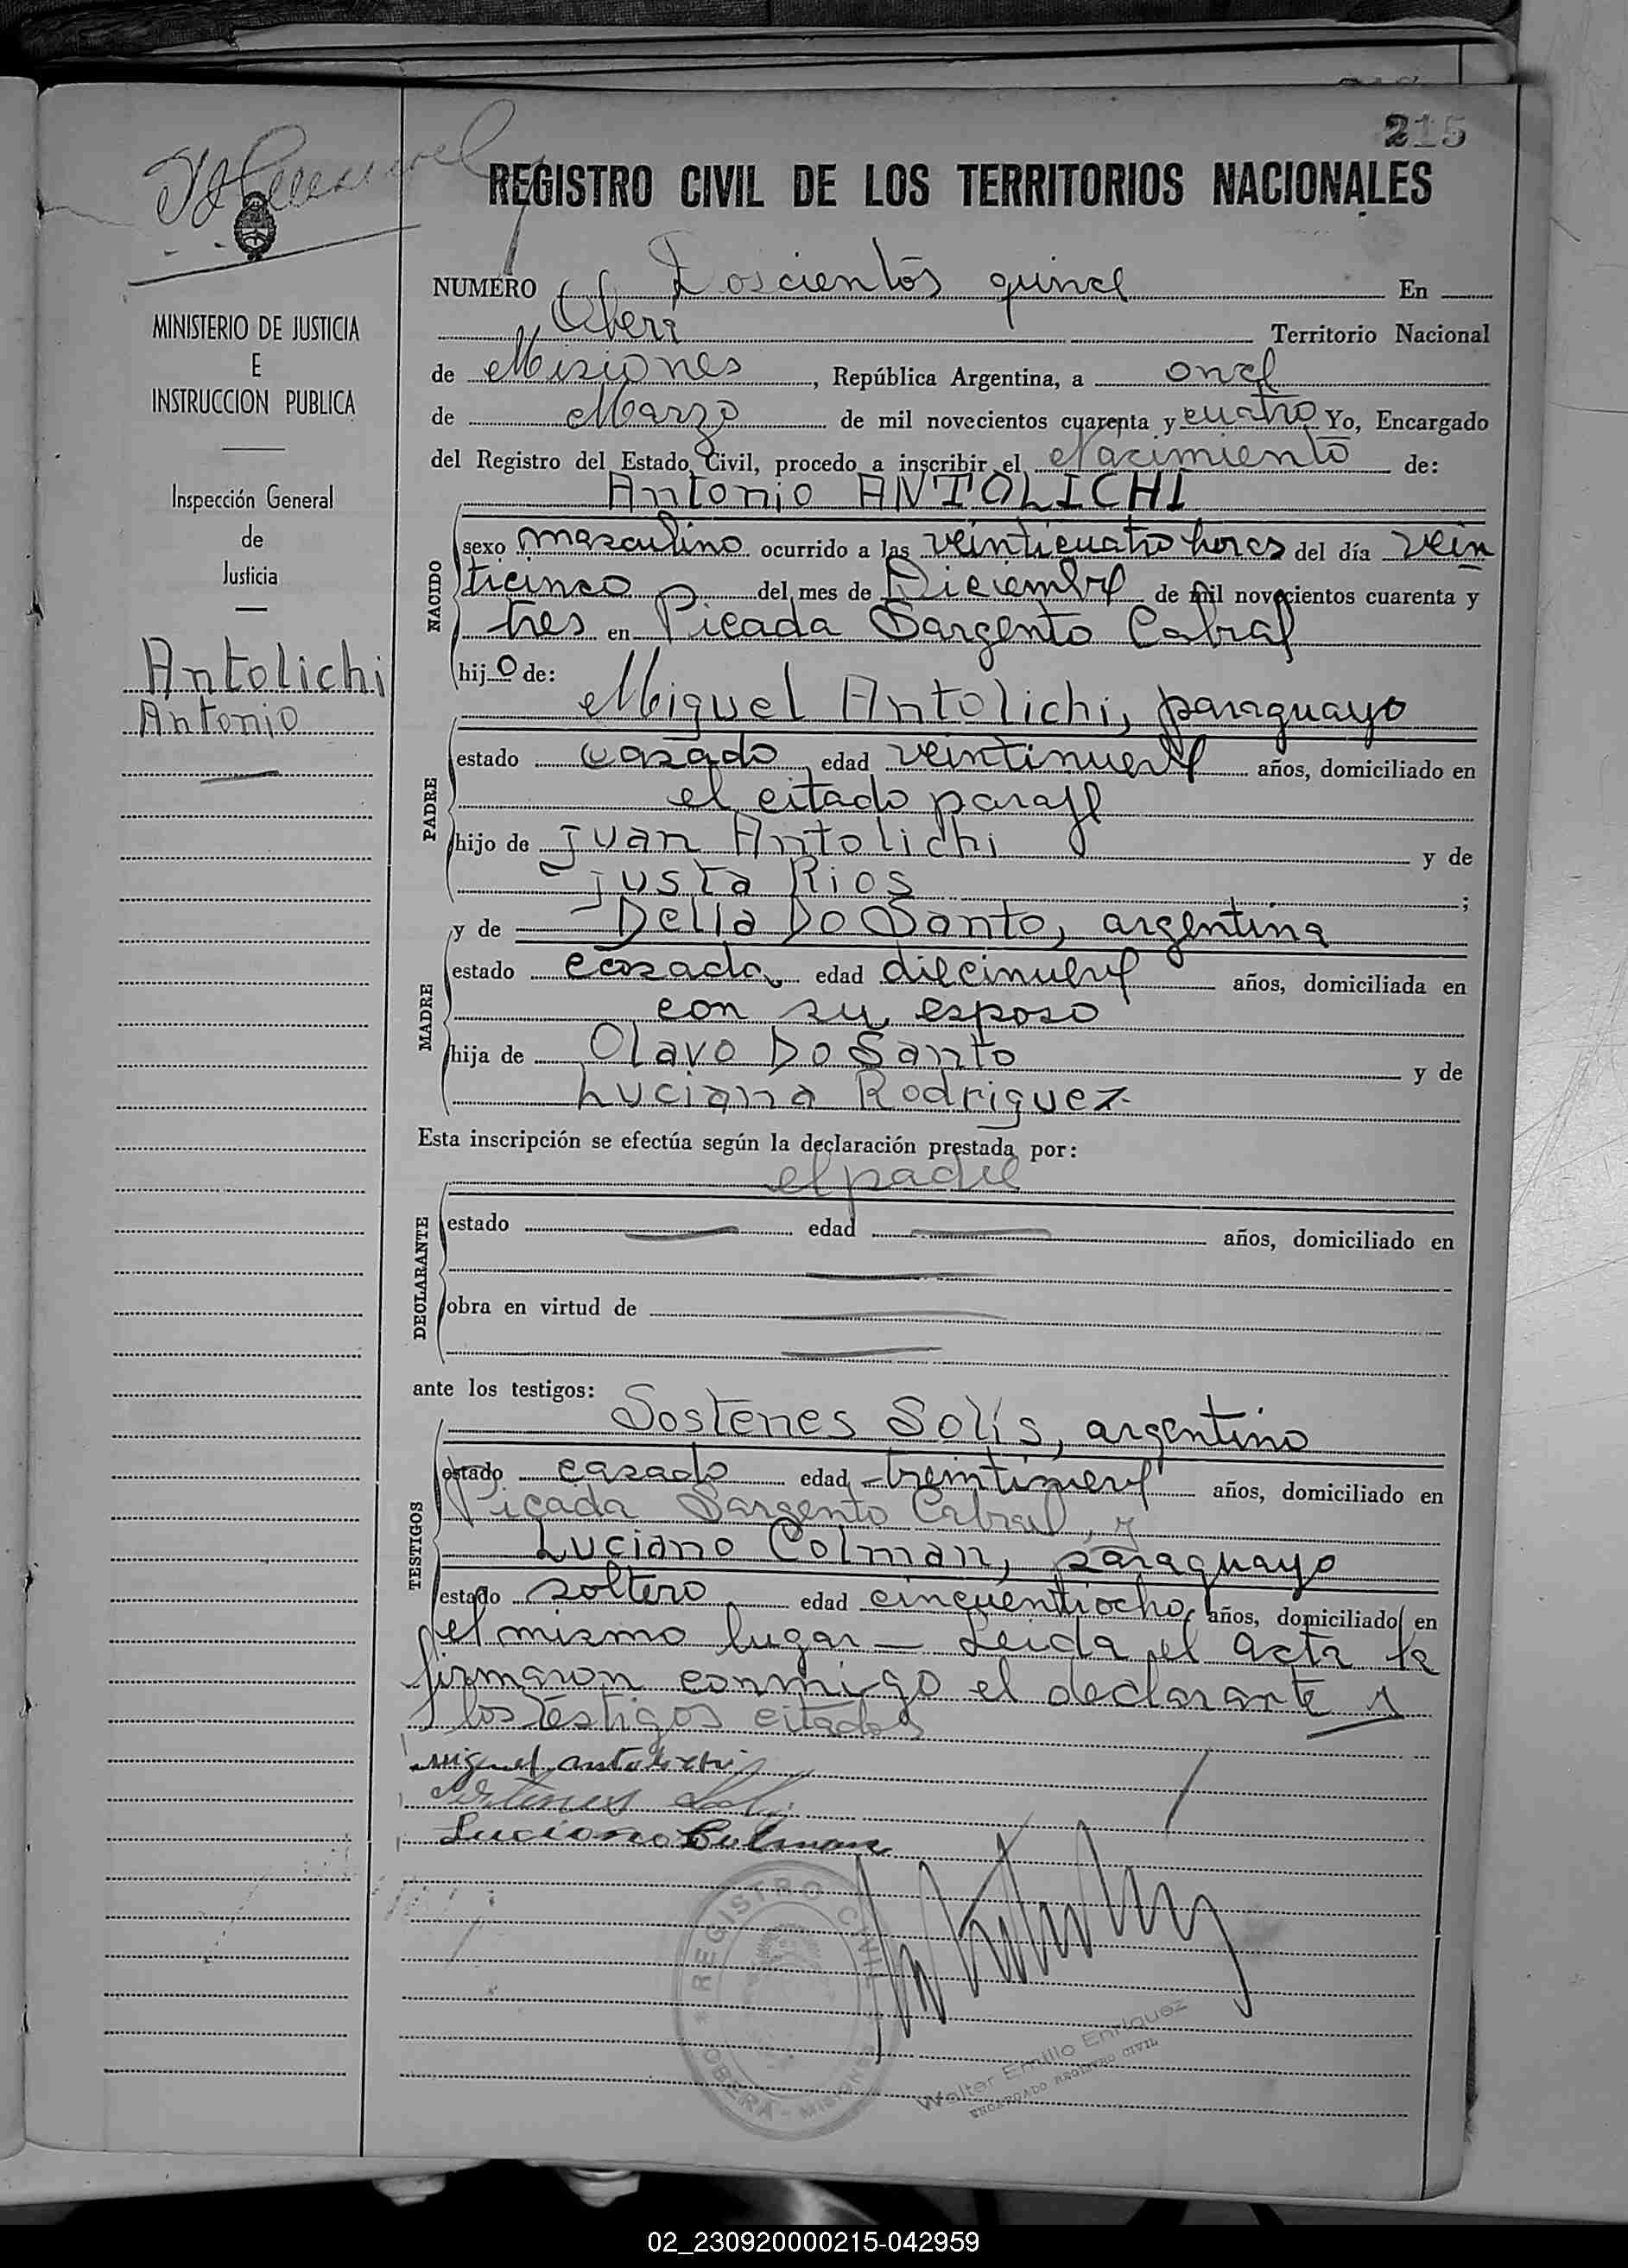 215
REGISTRO CIVIL DE LOS TERRITORIOS NACIONALES
MINISTERIO DE JUSTICIA
E
INSTRUCCION PUBLICA
Inspección General
de
Justicia
Antolichi
Antonio
NUMERO Doscientos quince En
Oberá Territorio Nacional
de Misiones, República Argentina, a once
de Marzo de mil novecientos cuarenta y cuatro Yo, Encargado
del Registro del Estado Civil, procedo a inscribir el Nacimiento de:
Antonio ANTOLICHI
NACIDO
sexo masculino ocurrido a las veinticuatro horas del día vein
ticinco del mes de Diciembre de mil novecientos cuarenta y
tres en Picada Sargento Cabral
hijo de:
Miguel Antolichi, paraguayo
PADRE
estado casado edad veintinueve años, domiciliado en
el citado paraje
hijo de Juan Antolichi y de
Justa Rios ;
y de Delia Do Santo, argentina
MADRE
estado casada edad diecinueve años, domiciliada en
con su esposo
hija de Olavo Do Santo y de
Luciana Rodriguez
Esta inscripción se efectúa según la declaración prestada por:
el padre
DECLARANTE
estado edad años, domiciliado en
obra en virtud de
ante los testigos:
Sostenes Solís, argentino
TESTIGOS
estado casado edad treintinueve años, domiciliado en
Picada Sargento Cabral, y
Luciano Colman, paraguayo
estado soltero edad cincuentiocho años, domiciliado en
el mismo lugar — Leida el acta la
firmaron conmigo el declarante y
los testigos citados
Miguel antolichi
Sostenes Solis
Luciano Colman
REGISTRO CIVIL
OBERA - MISIONES
Walter Emilio Enriquez
ENCARGADO REGISTRO CIVIL
02_230920000215-042959